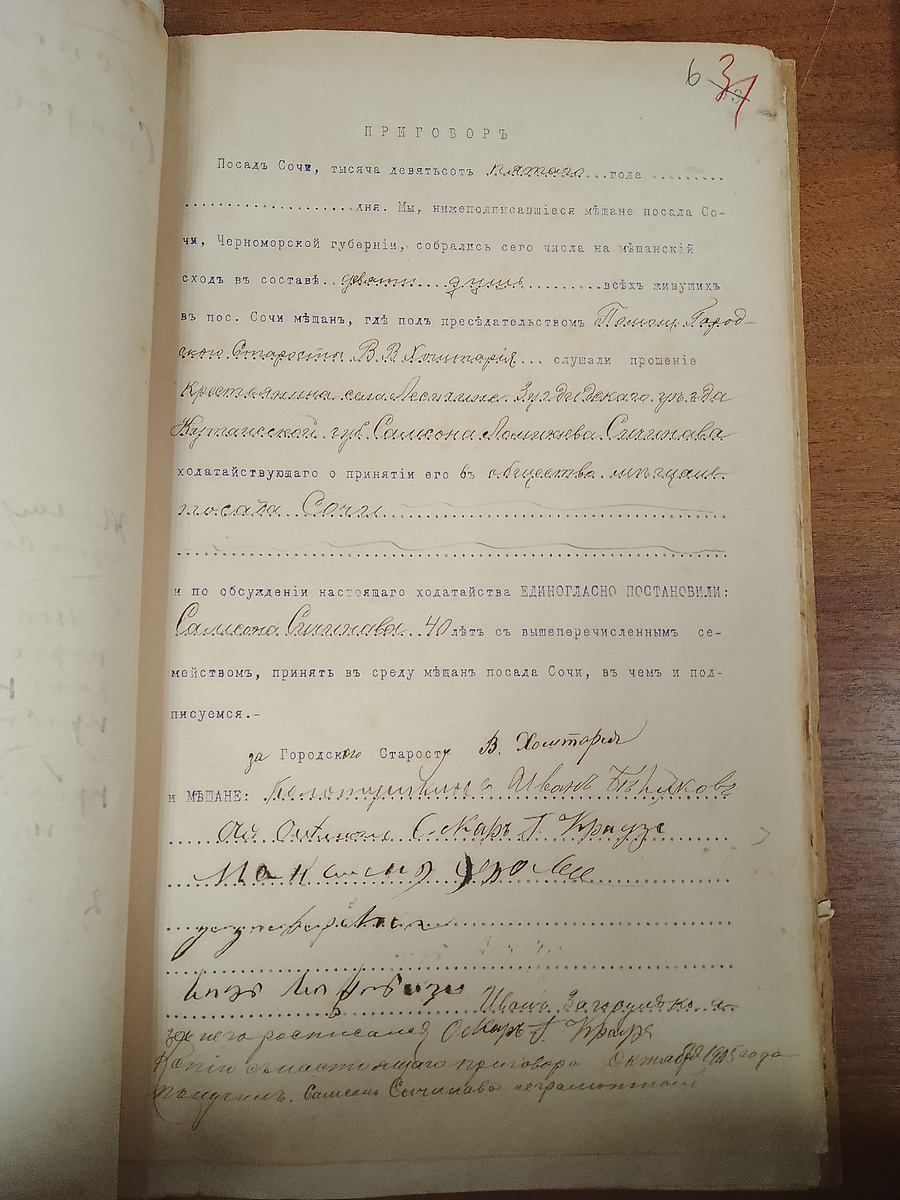 6 31
ПРИГОВОРЪ
Посадъ Сочи, тысяча девятьсот пятаго ...гола .........
....................дня. Мы, нижеподписавшіеся мѣщане посала Со-
чи, Черноморской губерніи, собрались сего числа на мѣщанскій
сходъ въ составѣ.. девяти.... душъ..........всѣхъ живущихъ
въ пос. Сочи мѣщанъ, гдѣ подъ пресѣдательствомъ Помощ. Город-
ского Старосты В. Хоштарія... слушали прошеніе
Крестьянина села Зугдидскаго уѣзда
Кутаисской губ. Самсона Сичинава
ходатайствующаго о принятіи его въ общество мѣщанъ
посада Сочи
и по обсужденіи настоящаго ходатайства ЕДИНОГЛАСНО ПОСТАНОВИЛИ:
Самсона Сичинава...40 лѣтъ съ вышеперечисленнымъ се-
мействомъ, принять въ среду мѣщанъ посала Сочи, въ чемъ и под-
писуемся.-
за Городского Старосту В. Хоштарія
и МѢЩАНЕ: Иванъ
Оскаръ Г. Краузе
Иванъ Загорулько а
за него росписался Оскаръ Г. Краузе
Копію с настоящаго приговора Октября 1905 года
получилъ. Самсонъ Сичинава неграмотный